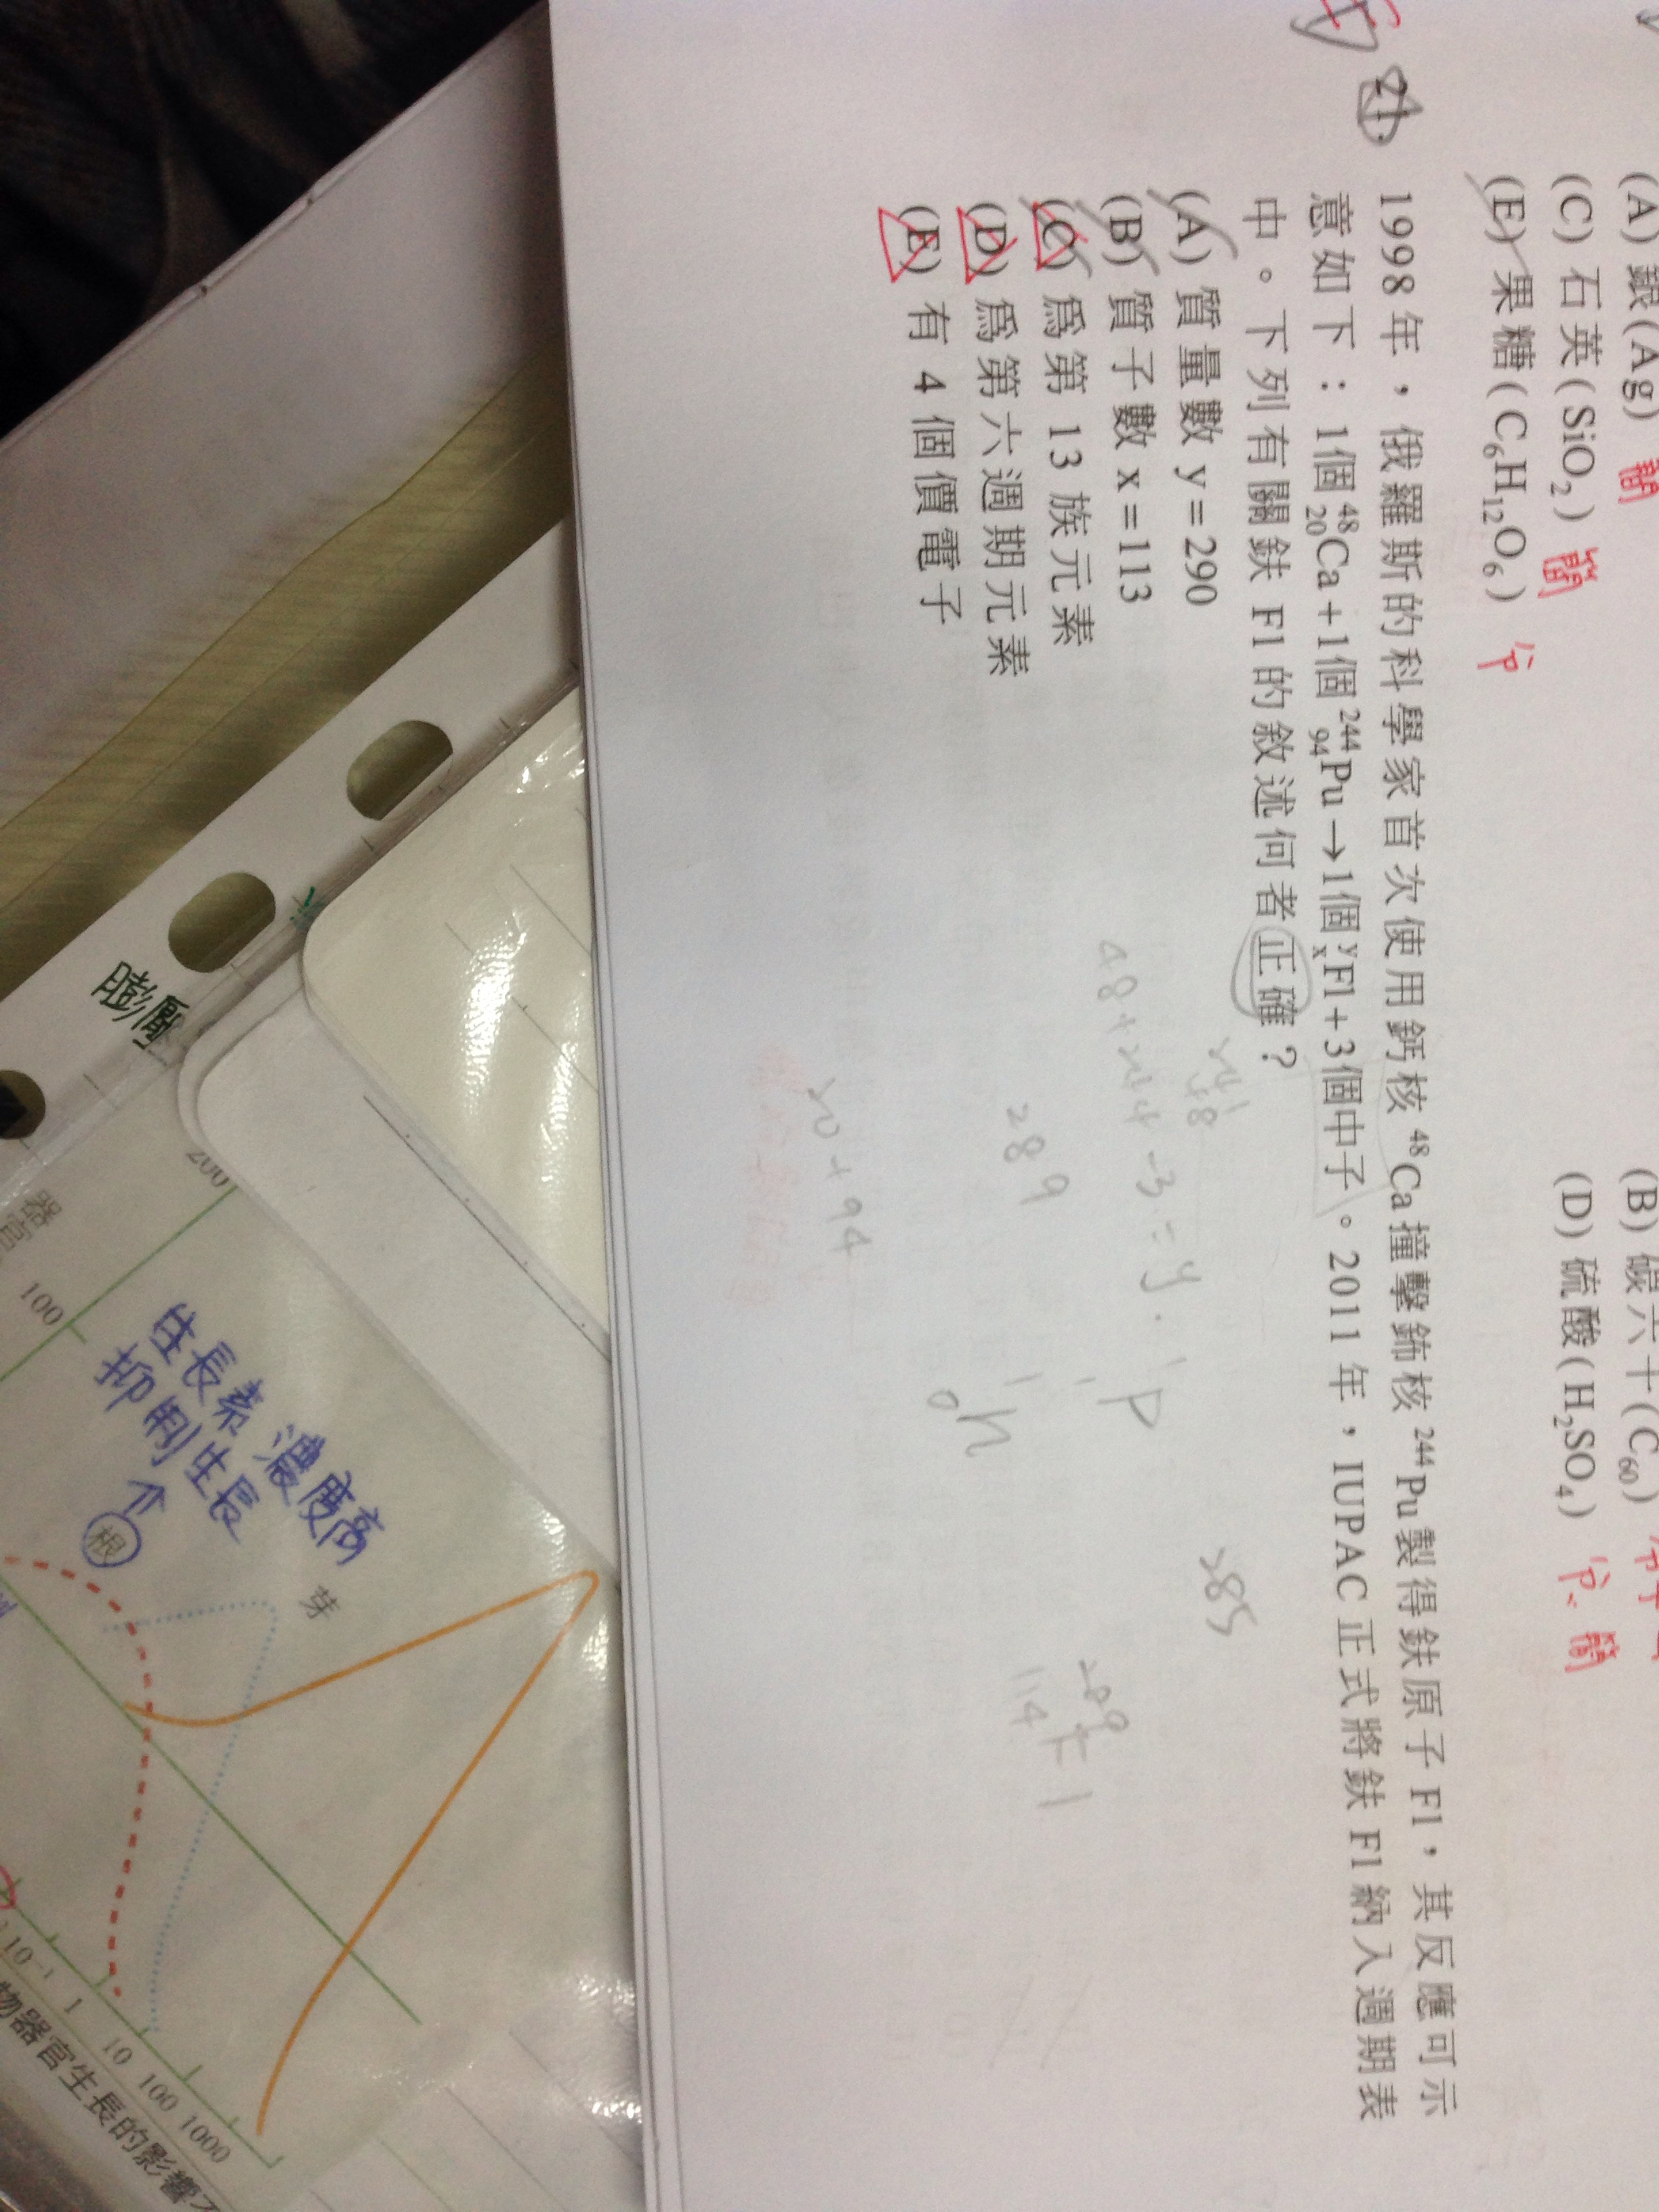 (A) 銀(Ag) 簡
(B) 碳六十(C₆₀)
(C) 石英(SiO₂) 簡
(D) 硫酸(H₂SO₄) 分、簡
(E) 果糖(C₆H₁₂O₆) 分
21. 1998年，俄羅斯的科學家首次使用鈣核 ⁴⁸Ca撞擊鈽核 ²⁴⁴Pu製得鈇原子Fl，其反應可示
意如下：1個⁴⁸₂₀Ca+1個²⁴⁴₉₄Pu→1個ʸₓFl+3個中子。2011年，IUPAC正式將鈇Fl納入週期表
中。下列有關鈇Fl的敘述何者正確？
(A) 質量數y=290
(B) 質子數x=113
(C) 為第13族元素
(D) 為第六週期元素
(E) 有4個價電子
48+244-3=y.
289
20+94
¹₁P
¹₀n
285
²⁸⁹₁₁₄Fl
膨壓
生長素濃度高
抑制生長
根
芽
200
100
器官
10⁻¹ 1 10 100 1000
物器官生長的影響